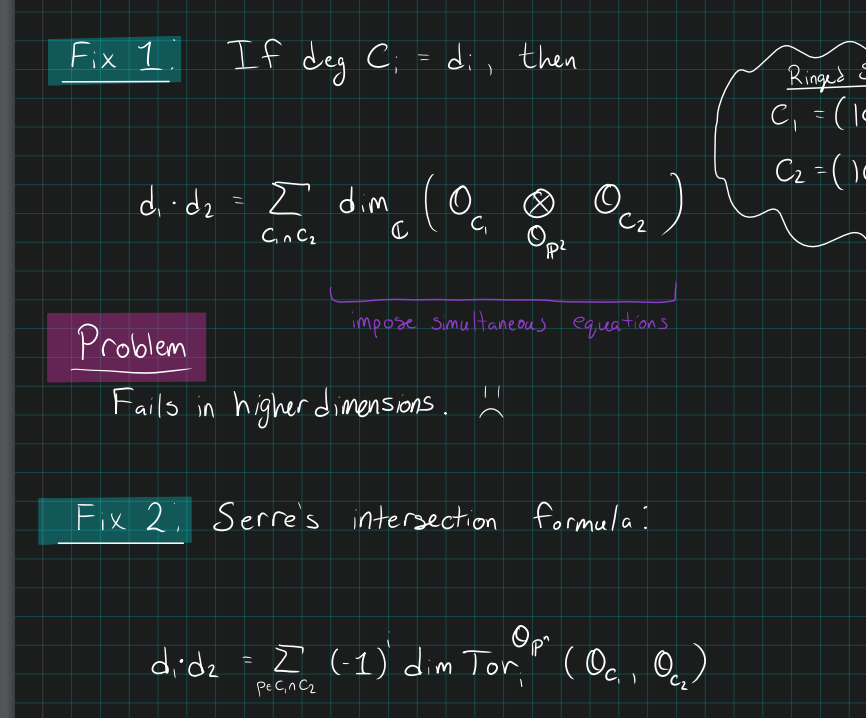 Fix 1: If deg Cᵢ = dᵢ, then
Ringed
C₁ = (
C₂ = (
d₁ · d₂ = Σ_{C₁∩C₂} dim_ℂ (𝒪_{C₁} ⊗_{𝒪_{ℙ²}} 𝒪_{C₂})
impose simultaneous equations
Problem
Fails in higher dimensions. ☹
Fix 2: Serre's intersection formula:
d₁·d₂ = Σ_{p∈C₁∩C₂} (-1)ⁱ dim Torᵢ^{𝒪_{ℙⁿ}} (𝒪_{C₁}, 𝒪_{C₂})